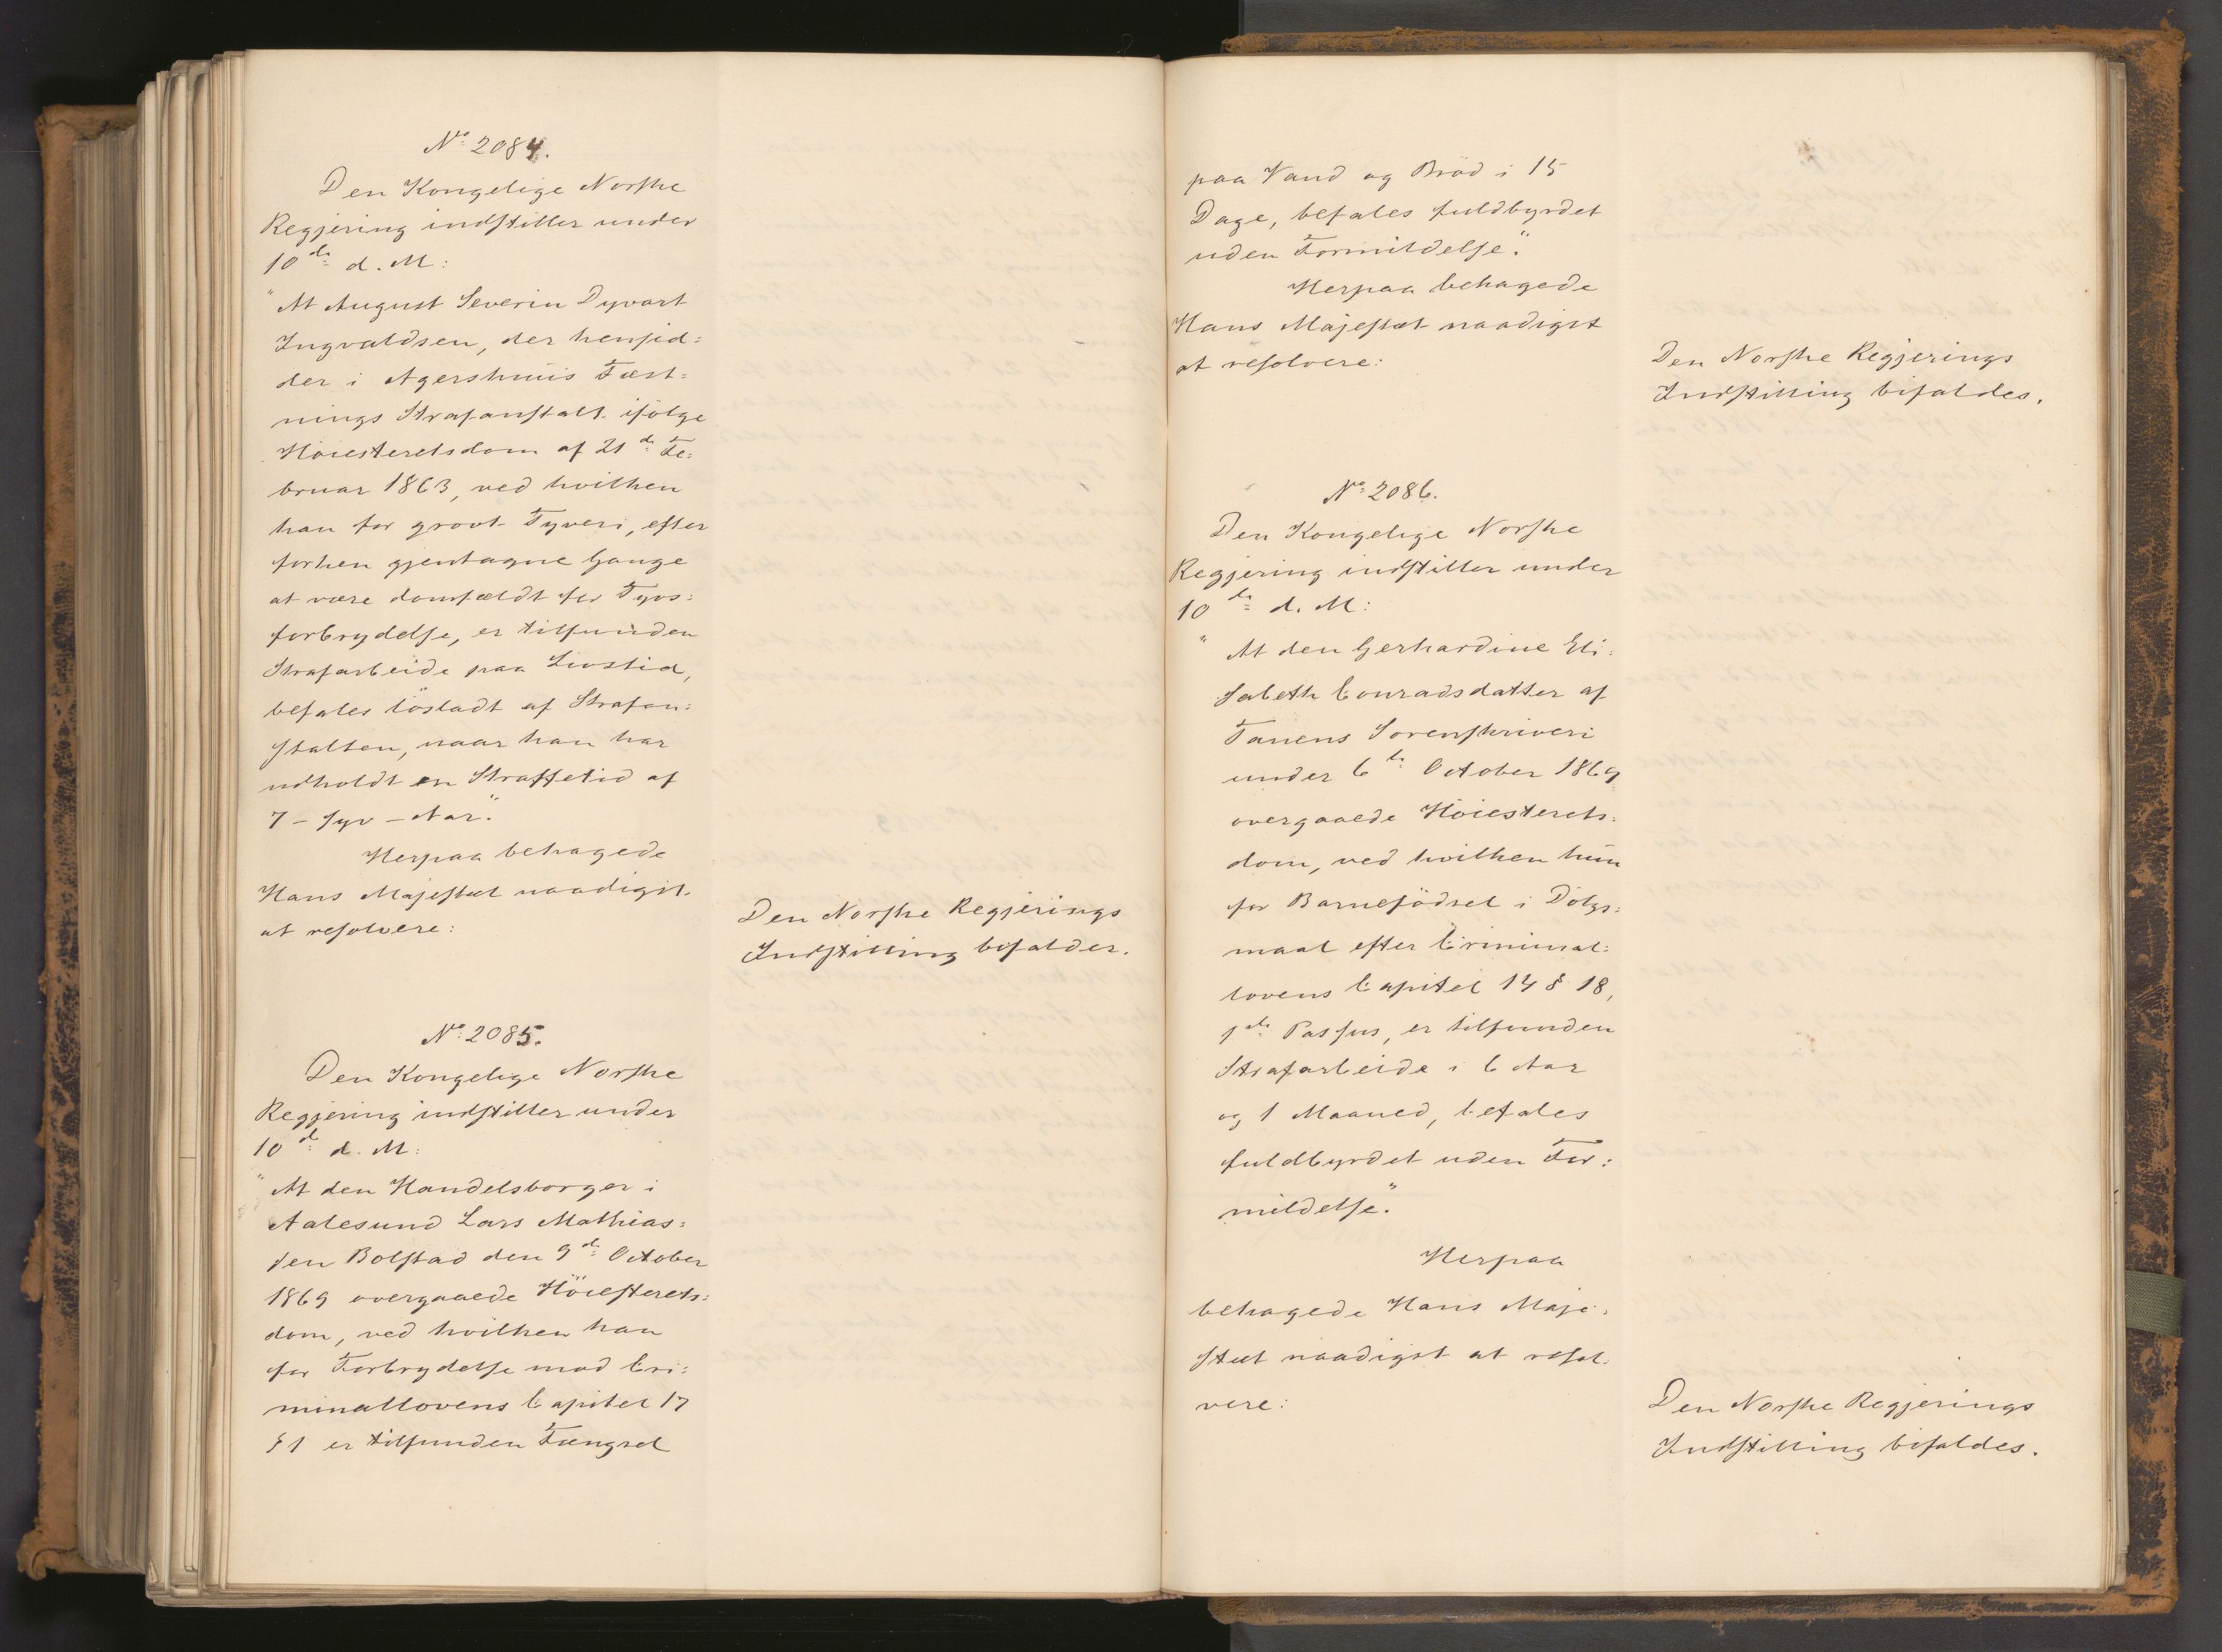 No 2084.
Den Kongelige Norske
Regjering indstiller under
10de d. M:
"At August Severin Dyvart
Ingvaldsen, der hensid:
der i Agershuus Fæst:
nings Strafanstalt ifølge
Höiesteretsdom af 21de Fe:
bruar 1863, ved hvilken
han for grovt Tyveri, efter
forhen gjentagne Gange
at være domfældt for Tyvs:
forbrydelse, er tilfunden
Strafarbeide paa Livstid,
befales lösladt af Strafan:
stalten, naar han har
udholdt en Straffetid af
7 – syv – Aar."
Herpaa behagede
Hans Majestæt naadigst
at resolvere:
Den Norske Regjerings
Indstilling bifaldes.
No 2085.
Den Kongelige Norske
Regjering indstiller under
10de d. M:
"At den Handelsborger i
Aalesund Lars Mathias:
sen Bolstad den 9de October
1869 overgaaede Höiesterets:
dom, ved hvilken han
for Forbrydelse mod Cri:
minallovens Capitel 17
§ 1 er tilfunden Fængsel
paa Vand og Bröd i 15
Dage, befales fuldbyrdet
uden Formildelse."
Herpaa behagede
Hans Majestæt naadigst
at resolvere:
Den Norske Regjerings
Indstilling bifaldes.
No 2086.
Den Kongelige Norske
Regjering indstiller under
10de d. M:
"At den Gerhardine Eli:
sabeth Conradsdatter af
Tanens Sorenskriveri
under 6te October 1869
overgaaede Höiesterets:
dom, ved hvilken hun
for Barnefödsel i Dölgs:
maal efter Criminal:
lovens Capitel 14 § 18,
1ste Passus, er tilfunden
Strafarbeide i 6 Aar
og 1 Maaned, befales
fuldbyrdet uden For:
mildelse."
Herpaa
behagede Hans Maje:
stæt naadigst at resol:
vere:
Den Norske Regjerings
Indstilling bifaldes.